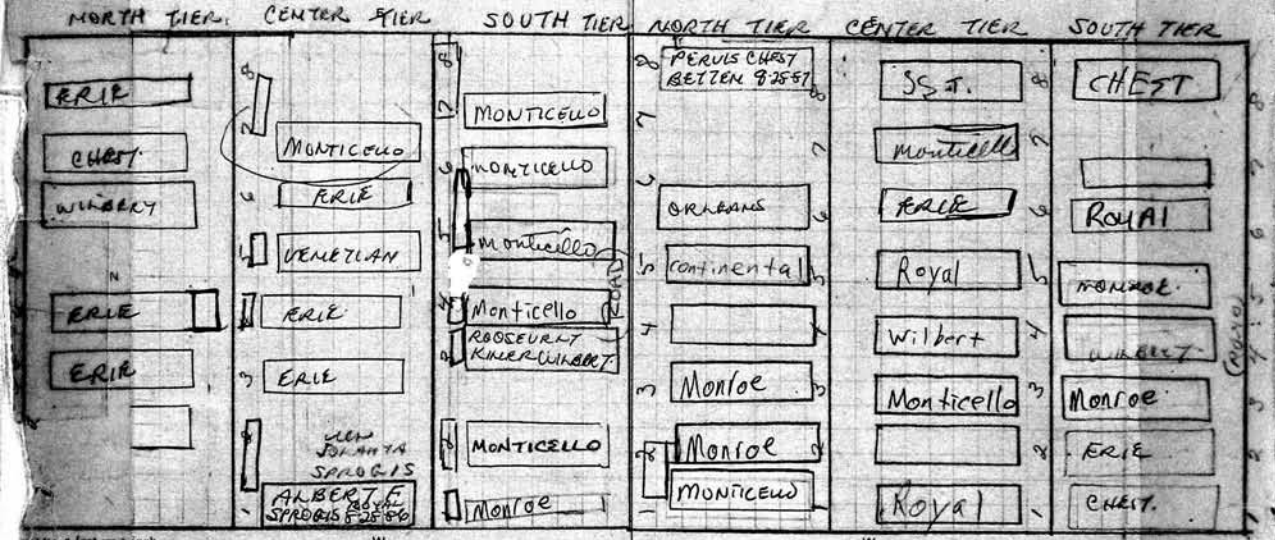 NORTH TIER. CENTER TIER SOUTH TIER NORTH TIER CENTER TIER SOUTH TIER
ERIE
CHEST.
WILBERT
ERIE
ERIE
8
7
MONTICELLO
6
ERIE
5
VENETIAN
ERIE
3
ERIE
SPROGIS
ALBERT F.
ROYAL
SPROGIS 8-25-86
1
8
17
MONTICELLO
6
MONTICELLO
Monticello
ROAD
Monticello
ROOSEVELT
KINER WILBERT
MONTICELLO
Monroe
8
PERVIS CHEST
BETTEN 8-25-87
8
7
7
6
ORLEANS
6
5
continental
5
4
4
3
Monroe
3
2
Monroe
2
MONTICELLO
1
1
S.S.T.
8
Monticello
7
ERIE
6
Royal
5
Wilbert
4
Monticello
3
2
Royal
1
CHEST
8
7
ROYAL
6
MONROE
5
WILBERT
4
(ROAD)
Monroe
3
ERIE
2
CHEST.
1
N